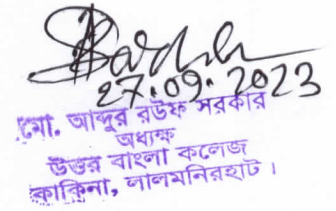 27.09.2023
মো. আব্দুর রউফ সরকার
অধ্যক্ষ
উত্তর বাংলা কলেজ
কাকিনা, লালমনিরহাট।